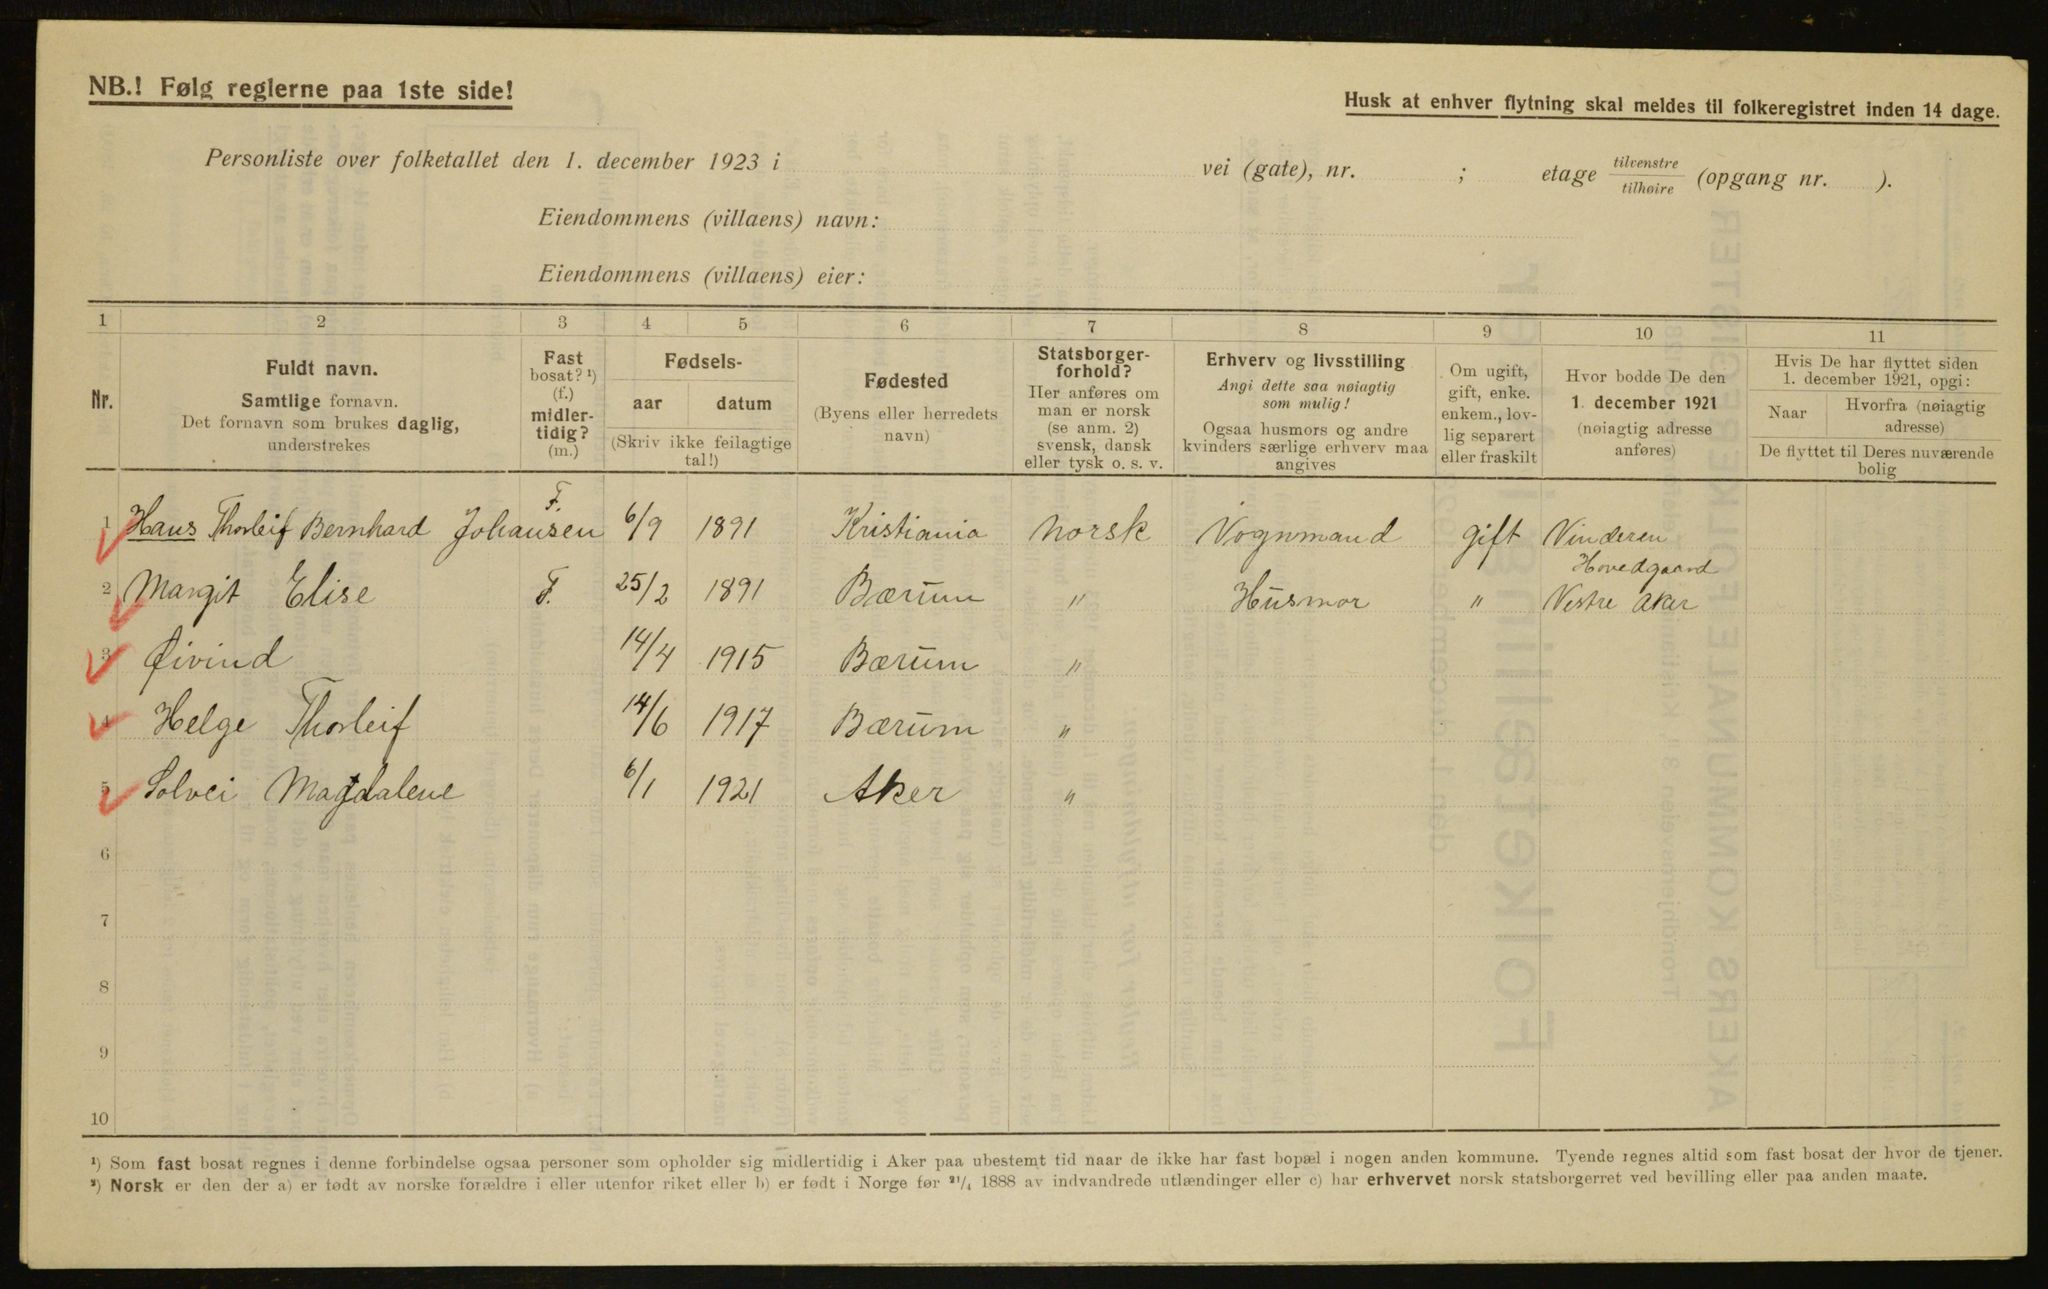 NB.! Følg reglerne paa 1ste side!
Husk at enhver flytning skal meldes til folkeregistret inden 14 dage.
Personliste over folketallet den 1. december 1923 i vei (gate), nr. ; etage tilvenstre / tilhøire (opgang nr. ).
Eiendommens (villaens) navn:
Eiendommens (villaens) eier:
1 2 3 4 5 6 7 8 9 10 11
Nr.
Fuldt navn.
Samtlige fornavn.
Det fornavn som brukes daglig,
understrekes
Fast
bosat? ¹)
(f.)
midler-
tidig?
(m.)
Fødsels-
aar datum
(Skriv ikke feilagtige
tal!)
Fødested
(Byens eller herredets
navn)
Statsborger-
forhold?
Her anføres om
man er norsk
(se anm. 2)
svensk, dansk
eller tysk o. s. v.
Erhverv og livsstilling
Angi dette saa nøiagtig
som mulig!
Ogsaa husmors og andre
kvinders særlige erhverv maa
angives
Om ugift,
gift, enke.
enkem., lov-
lig separert
eller fraskilt
Hvor bodde De den
1. december 1921
(nøiagtig adresse
anføres)
Hvis De har flyttet siden
1. december 1921, opgi:
Naar
Hvorfra (nøiagtig
adresse)
De flyttet til Deres nuværende
bolig
1 Hans Thorleif Bernhard Johansen F. 6/9 1891 Kristiania Norsk Vognmand gift Vinderen
Hovedgaard
2 Margit Elise F. 25/2 1891 Bærum " Husmor " Vestre Aker
3 Øivind 14/4 1915 Bærum "
4 Helge Thorleif 14/6 1917 Bærum "
5 Solvei Magdalene 6/1 1921 Aker "
6
7
8
9
10
¹) Som fast bosat regnes i denne forbindelse ogsaa personer som opholder sig midlertidig i Aker paa ubestemt tid naar de ikke har fast bopæl i nogen anden kommune. Tyende regnes altid som fast bosat der hvor de tjener.
²) Norsk er den der a) er født av norske forældre i eller utenfor riket eller b) er født i Norge før ²¹/₄ 1888 av indvandrede utlændinger eller c) har erhvervet norsk statsborgerret ved bevilling eller paa anden maate.